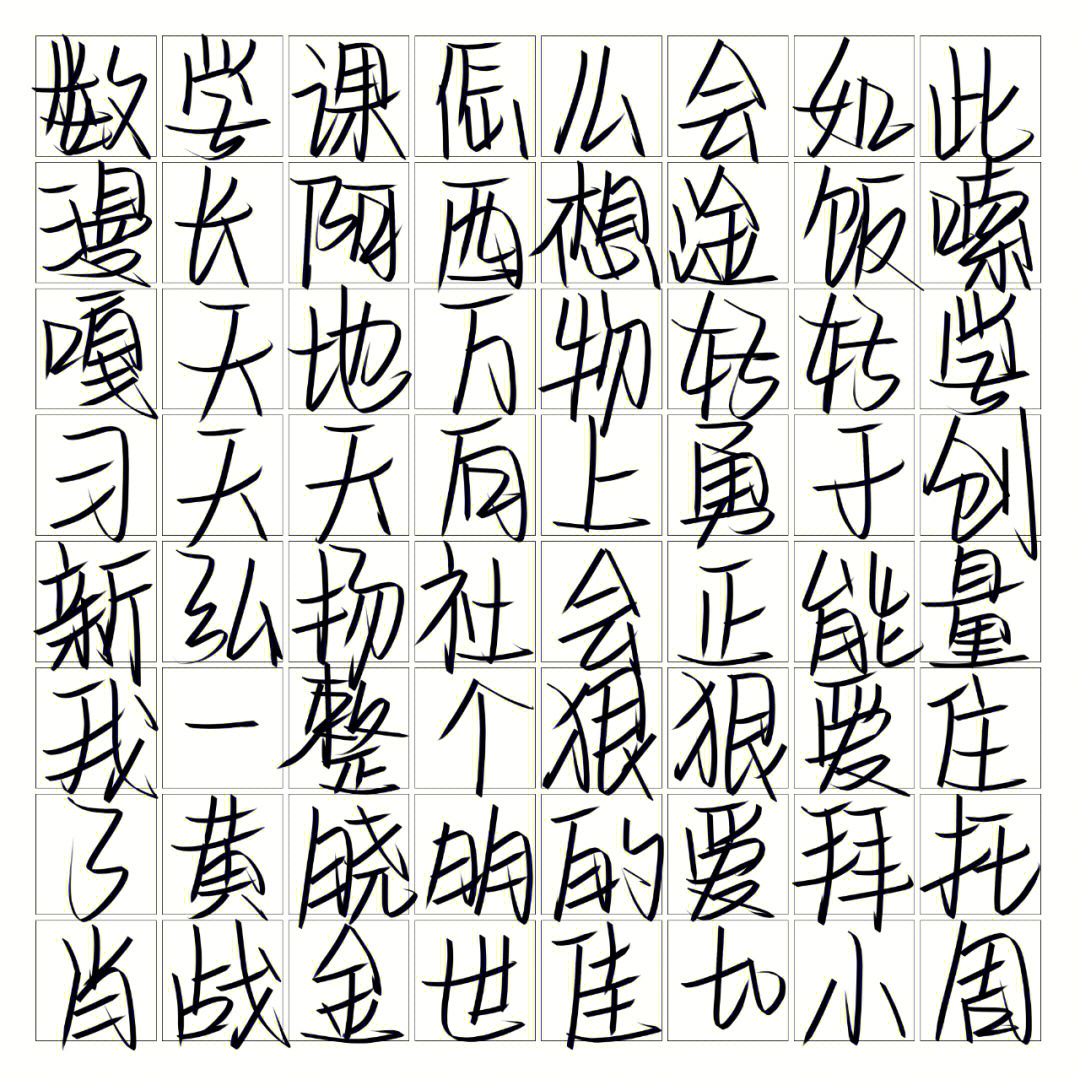 数学课怎么会如此
漫长阿西想途饭嗦
嘎天地万物转转学
习天天向上勇于创
新弘扬社会正能量
我一整个狠狠爱住
了黄晓明的爱拜托
肖战金世佳小周